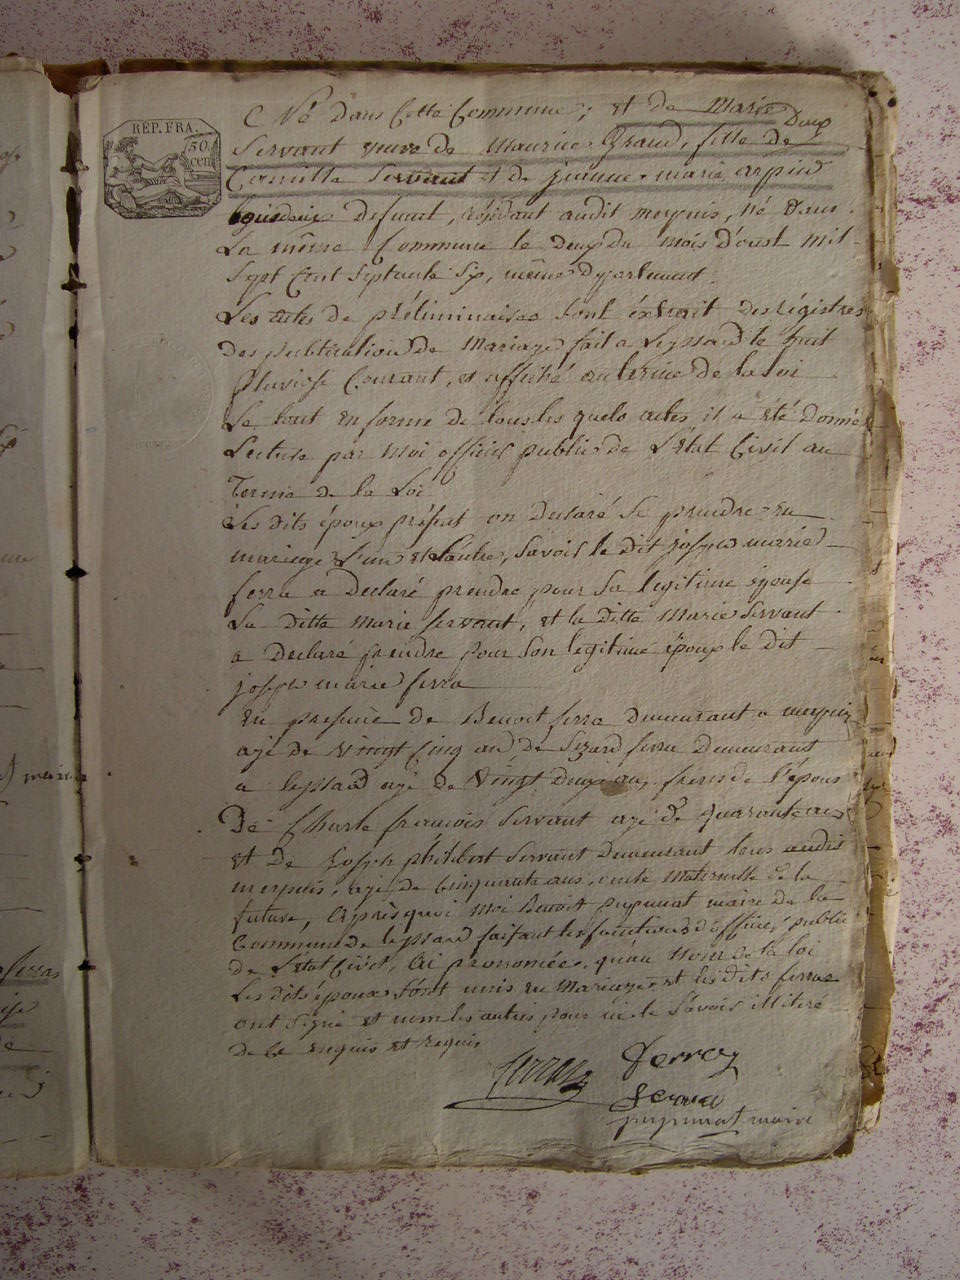 REP. FRA.
50
cen
Né dans Cette Commune; et de Marie
Servant veuve de Maurice Graud, fille de Deux
Camille Servant et de jeanne marie arpin
defunt, résidant audit meypuis, né dans
La même Commune le deux du mois d'oust mil
Sept Cent Septante Six, même département.
Les actes de préliminaires sont éxtrait des régistres
des publication de Mariage fait a Leyssard le huit
pluviose Courant, et affiché au terme de la loi
Le tout en forme de tous les quels actes il a été donné
Lecture par Moi officié public de L'état Civil au
Terme de la Loi
Les dits époux présent on Declaré se prendre en
mariage L'un et L'autre, Savoir le dit joseph marie
ferra a Declaré prendre pour Sa legitime épouse
La ditte marie servant, et la Ditte Marie Servant
a Declaré prendre pour Son legitime époux le dit
joseph marie ferra
En présence de Benoit ferra demeurant a
agé de Vinngt Cinq an de Sezard ferra Demeurant
a leyssard agé de Vingt deux an, freres de l'épous
De Charle francois Servant agé de Quarante ans
et de Joseph philibert Servant Demeurant tous audit
meypuis, agé de Cinquante ans, oncle Maternelle de la
future, Après quoi Moi Benoit pupunat maire de la
Commune de leyssard faisant les fonctions d'officié public
de L'état Civil, Ai prononcée, qu'au Nom de la loi
Les dits époux Sont unis en Mariage et les dits ferras
ont Signé et non les autres pour ne le Savoir illiteré
de ce enquis et requis
ferraz ferraz
ferra
pupunat maire